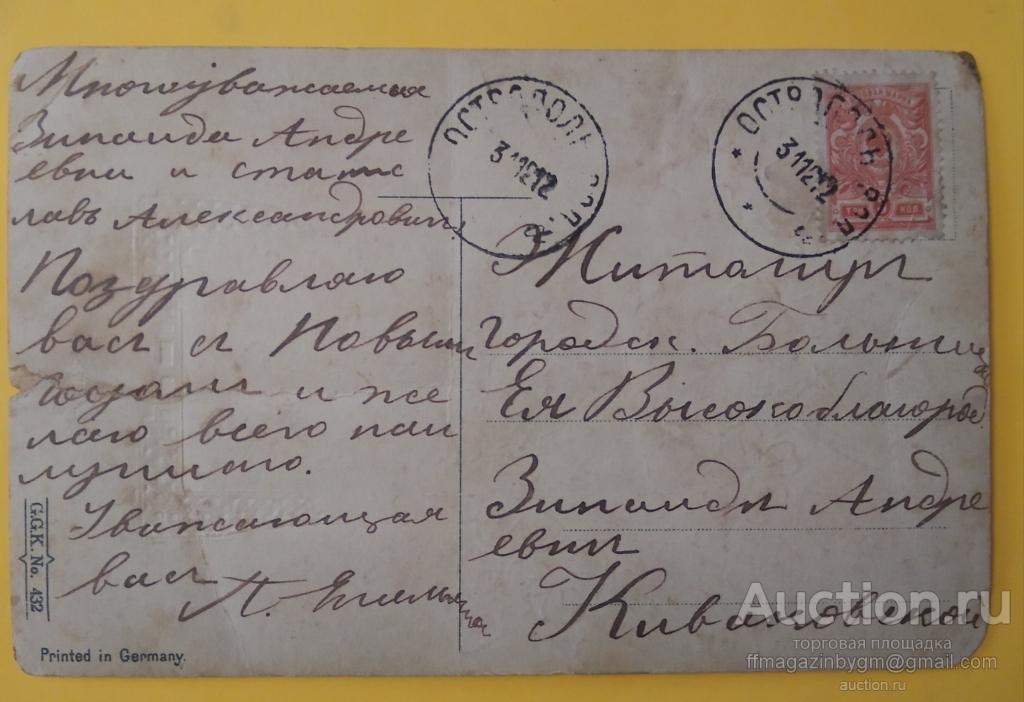 Многоуважаемая
Зинаида Андре
евна и станис
лавъ Александрович.
Поздравляю
васъ съ Новымъ
Годомъ и же
лаю всего наи
лучшаго.
Уважающая
васъ
G.G.K. No. 432
Printed in Germany.
ОСТРОПОЛЬ ВОЛ.
31 12 12
ОСТРОПОЛЬ ВОЛ.
31 12 12
КОП
Житомиръ
Городск. Больница
Ея Высокоблагород
Зинаиды Андре
евны
Auction.ru
торговая площадка
ffmagazinbygm@gmail.com
auction.ru